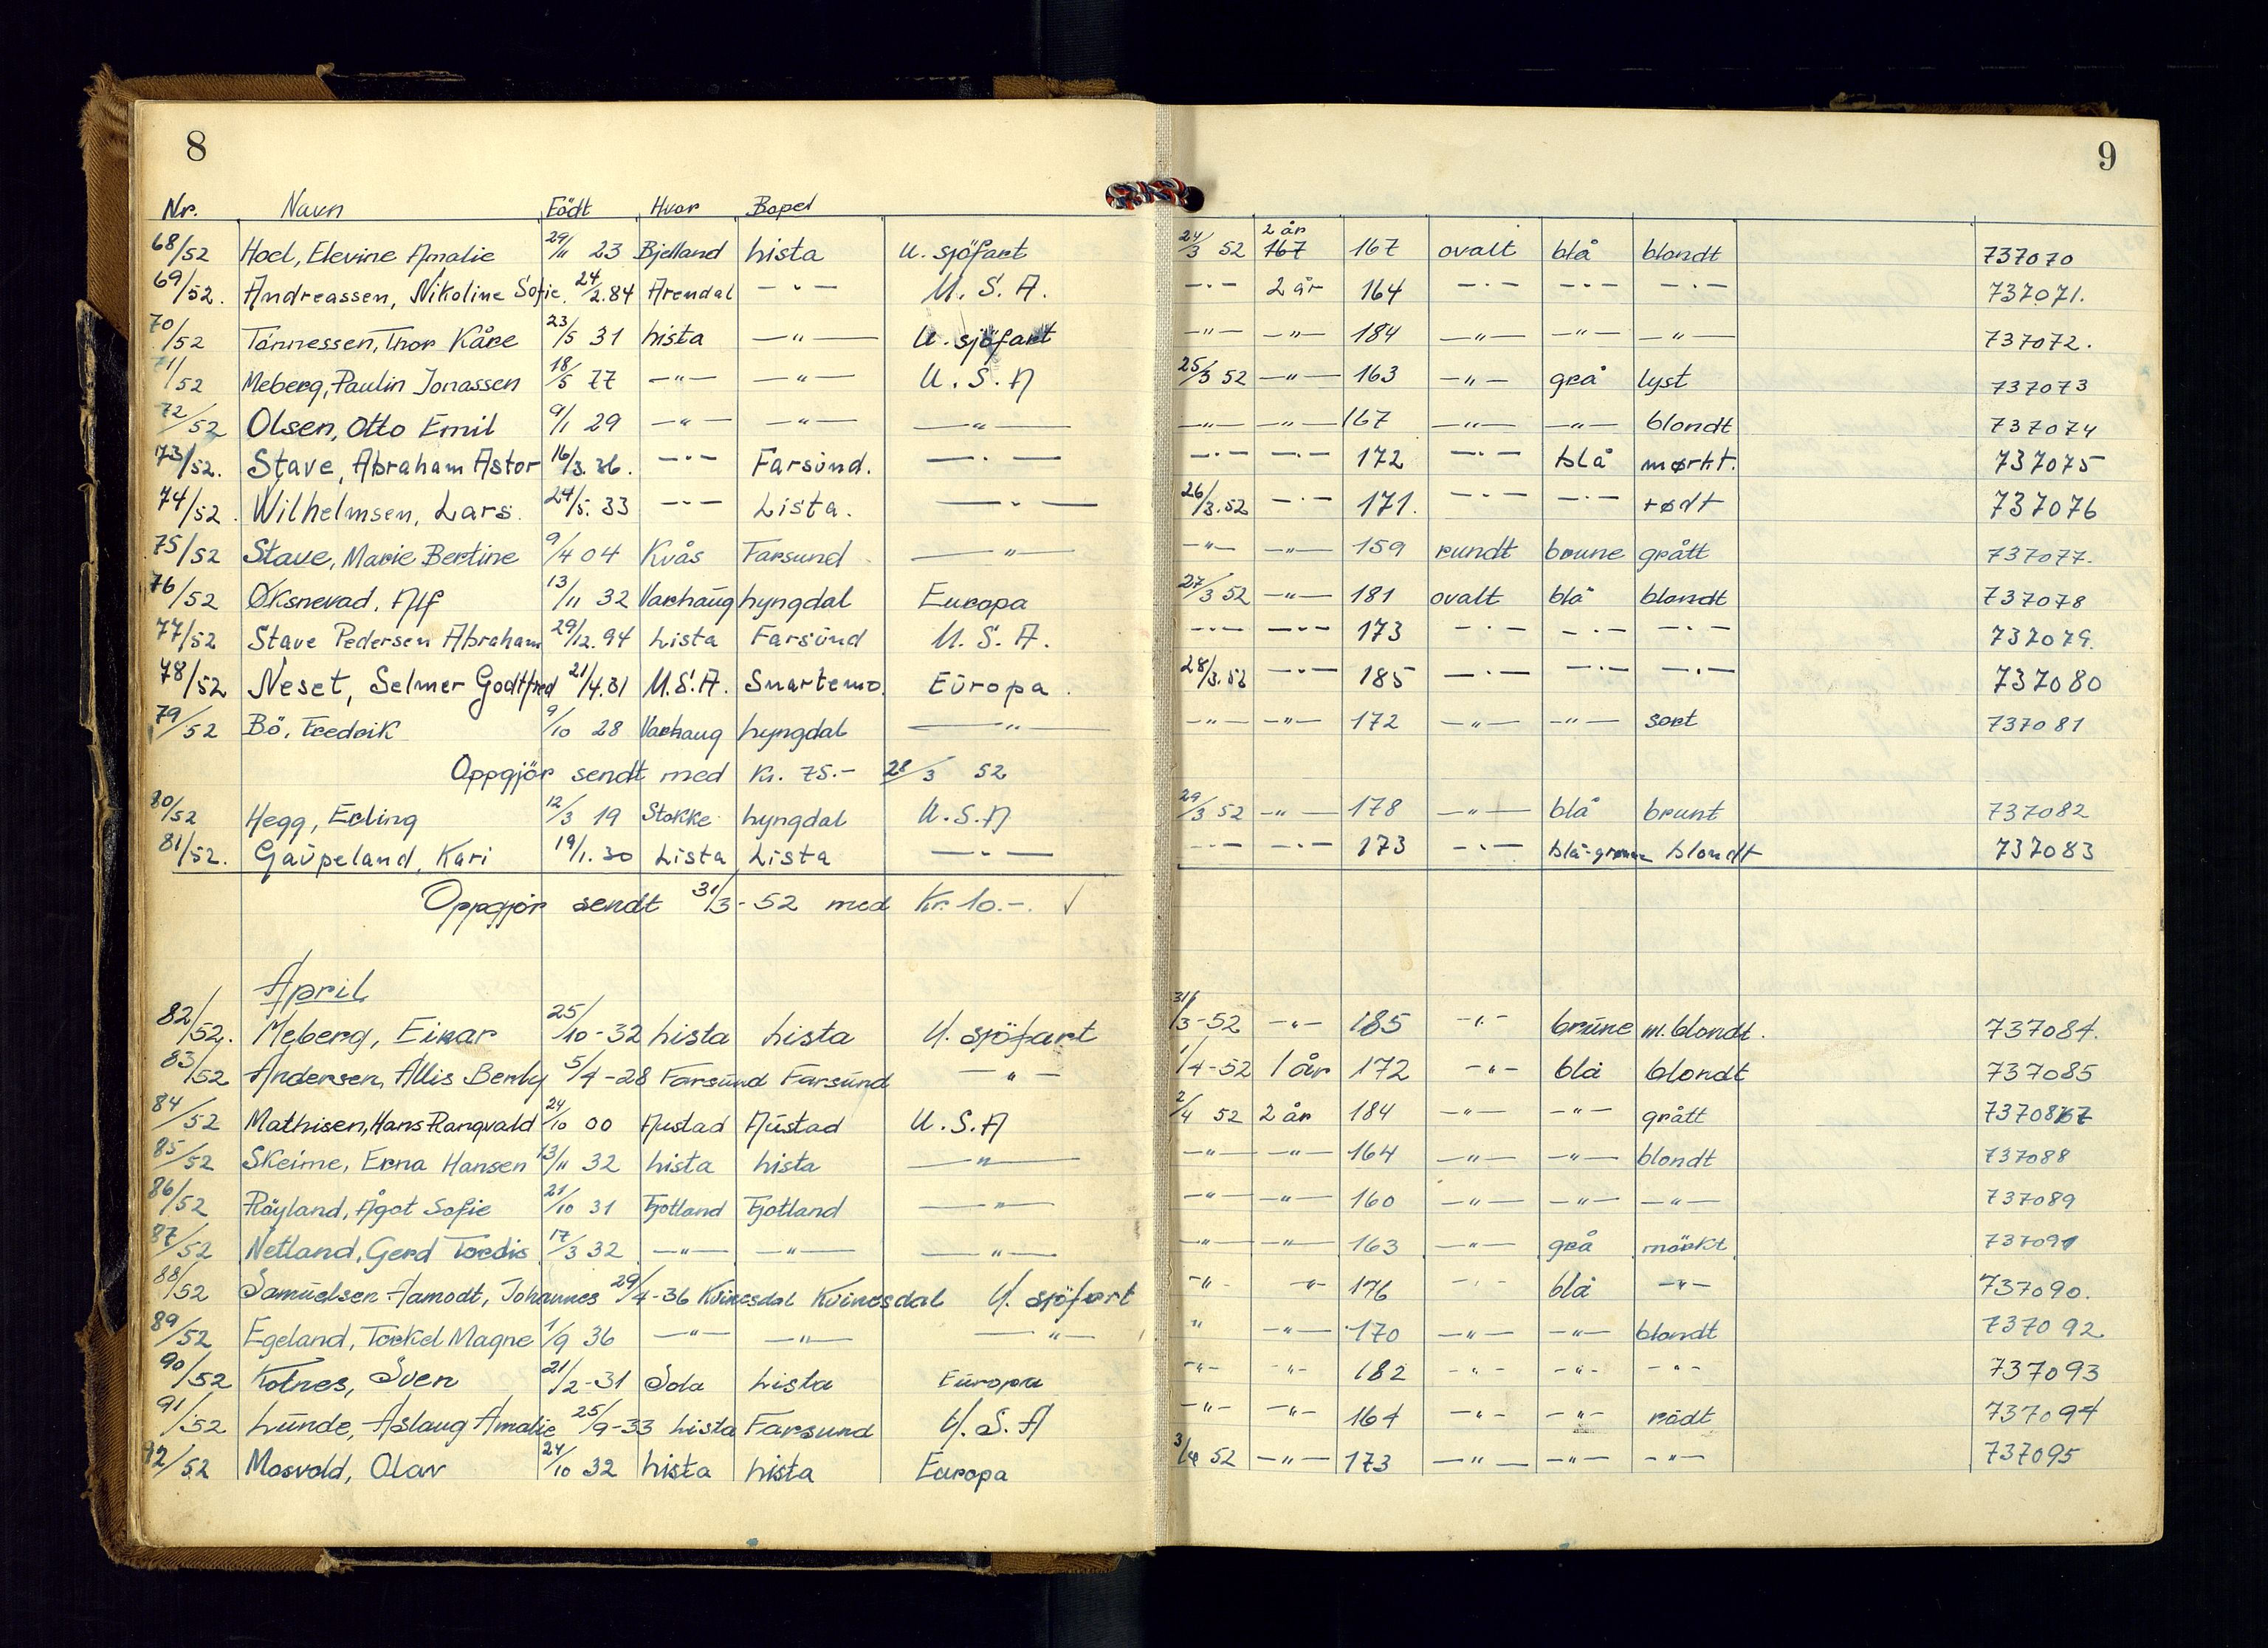 8
9
Nr. Navn Födt Hvor Bopel
68/52 Hoel, Elevine Amalie 29/11 23 Bjelland Lista U. sjöfart 24/3 52 2 år 167 167 ovalt blå blondt 737070
69/52. Andreassen, Nikoline Sofie. 24/2.84 Arendal —"— U. S. A. —"— 2 år 164 —"— —"— —"— 737071.
70/52 Tönnessen, Thor Kåre 23/5 31 Lista —"— U. sjöfart —"— —"— 184 —"— —"— —"— 737072.
71/52 Meberg, Paulin Jonassen 18/5 77 —"— —"— U. S. A 25/3 52 —"— 163 —"— grå lyst 737073
72/52 Olsen, Otto Emil 9/1 29 —"— —"— —"— —"— —"— 167 —"— —"— blondt 737074
73/52. Stave, Abraham Astor 16/3. 36. —"— Farsund. —"— —"— —"— 172 —"— blå mørkt. 737075
74/52. Wilhelmsen, Lars. 24/5. 33 —"— Lista. —"— 26/3.52 —"— 171. —"— —"— rødt 737076
75/52 Stave, Marie Bertine 9/4 04 Kvås Farsund —"— —"— —"— 159 rundt brune grått 737077.
76/52 Øksnevad, Alf 13/11 32 Varhaug Lyngdal Europa 27/3 52 —"— 181 ovalt blå blondt 737078
77/52 Stave Pedersen Abraham 29/12.94 Lista Farsund U. S. A. —"— —"— 173 —"— —"— —"— 737079.
78/52 Neset, Selmer Godtfred 21/4.31 U.S.A. Snartemo. Europa. 28/3.52 —"— 185 —"— —"— —"— 737080
79/52 Bö, Fredrik 9/10 28 Varhaug Lyngdal —"— —"— —"— 172 —"— —"— sort 737081
Oppgjör sendt med Kr. 75.- 28/3 52
80/52 Hegg, Erling 12/3 19 Stokke Lyngdal U.S.A 29/3 52 —"— 178 —"— blå brunt 737082
81/52. Gaupeland, Kari 19/1.30 Lista Lista —"— —"— —"— 173 —"— blå-grønn blondt 737083
Oppgjör sendt 31/3-52 med Kr. 10.-. √
April
82/52. Meberg, Einar 25/10-32 Lista Lista U. sjöfart 31/3-52 —"— 185 —"— brune m.blondt. 737084.
83/52 Andersen, Allis Benly 5/4-28 Farsund Farsund —"— 1/4-52 1 år 172 —"— blå blondt 737085
84/52 Mathisen, Hans Rangvald 24/10 00 Austad Austad U.S.A 2/4 52 2 år 184 —"— —"— grått 737087
85/52 Skeime, Erna Hansen 13/11 32 Lista Lista —"— —"— —"— 164 —"— —"— blondt 737088
86/52 Röyland, Ågot Sofie 21/10 31 Fjotland Fjotland —"— —"— —"— 160 —"— —"— —"— 737089
87/52 Netland, Gerd Tordis 17/3 32 —"— —"— —"— —"— —"— 163 —"— grå mörkt 737091
88/52 Samuelsen Aamodt, Johannes 29/4-36 Kvinesdal Kvinesdal U. sjöfart —"— —"— 176 —"— blå —"— 737090.
89/52 Egeland, Torkel Magne 1/9 36 —"— —"— —"— " —"— 170 —"— —"— blondt 737092
90/52 Kotnes, Sven 21/2-31 Sola Lista Europa —"— —"— 182 —"— —"— —"— 737093
91/52 Lunde, Aslaug Amalie 25/9-33 Lista Farsund U.S.A —"— —"— 164 —"— —"— rödt 737094
92/52 Mosvold, Olav 24/10 32 Lista Lista Europa 3/4 52 —"— 173 —"— —"— —"— 737095